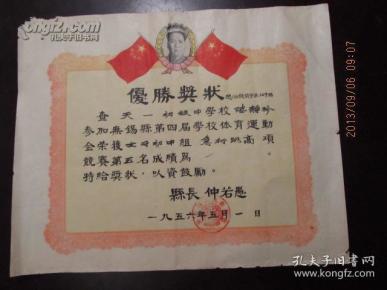 優勝獎狀
查天一初級中學校
參加無錫縣第四屆學校体育運動
会榮獲女子初中組急行跳高項
競賽第五名成績爲
特給獎狀，以資鼓勵。
縣長 仲若愚
一九五六年五月一日
2013/09/06 09:07
孔夫子旧书网